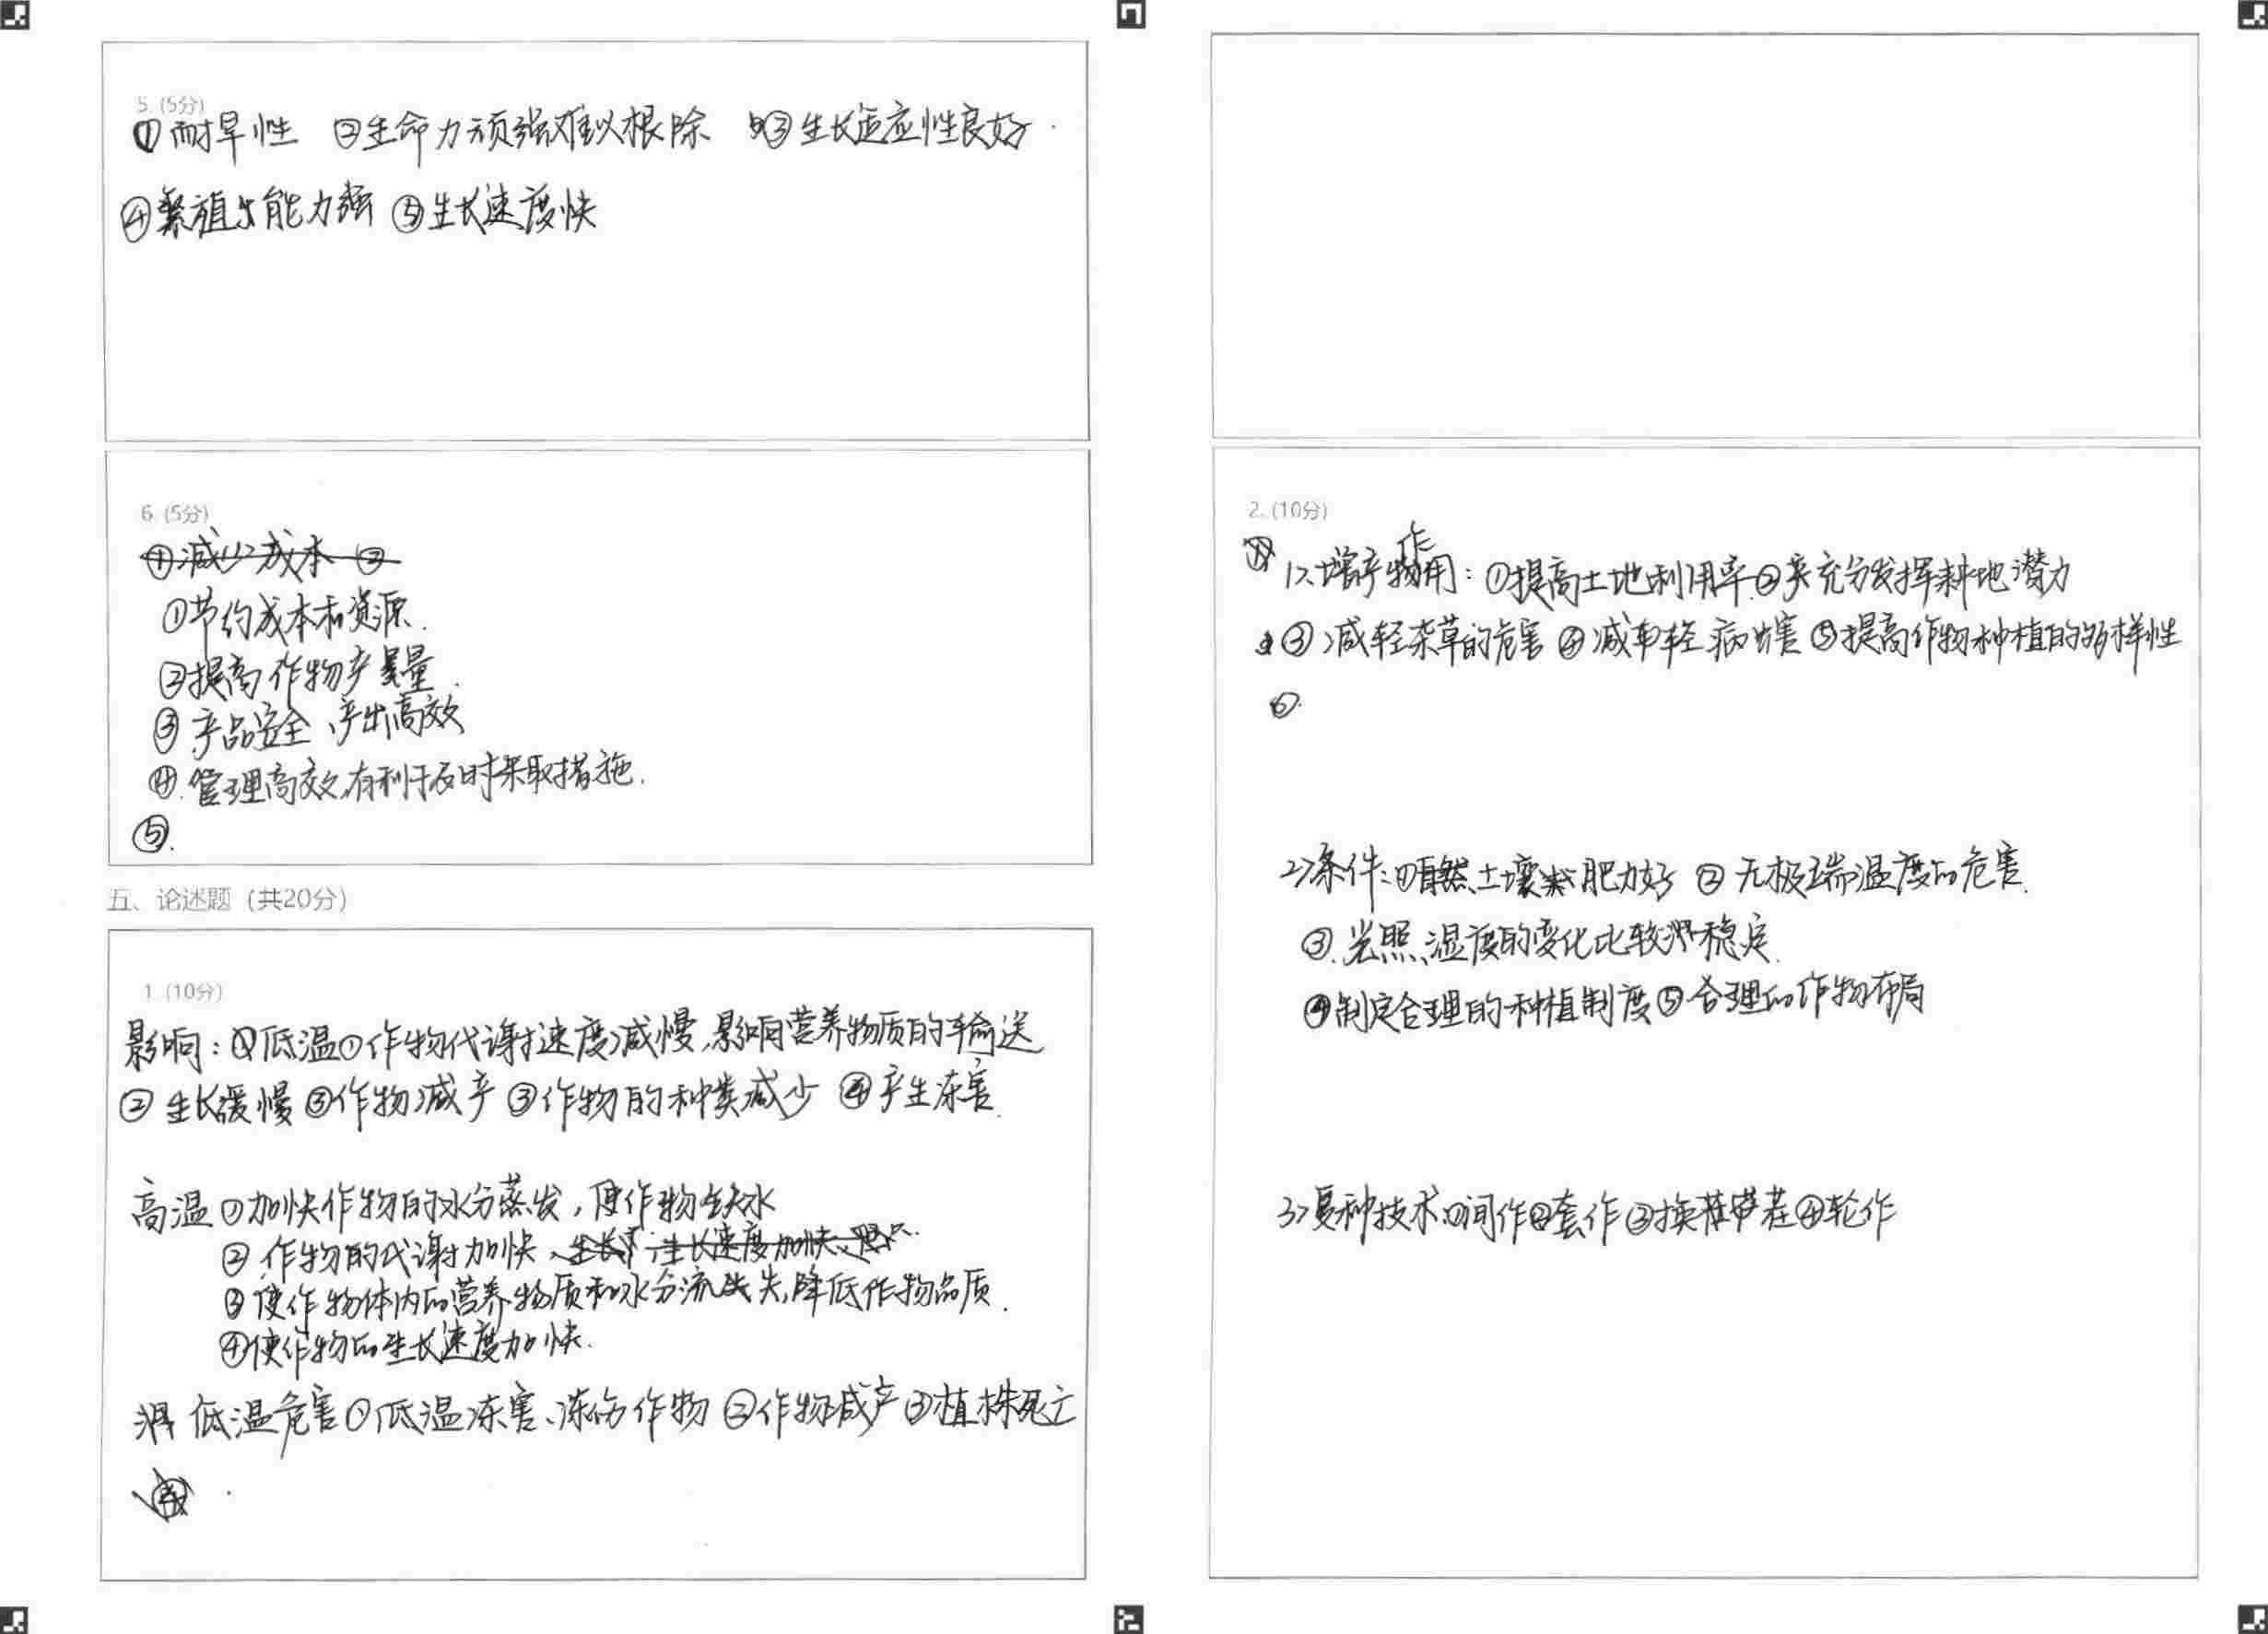 5. (5分)
①耐旱性 ②生命力顽强难以根除 ③生长适应性良好.
④繁殖能力强 ⑤生长速度快
6. (5分)
①减少成本 ②
①节约成本和资源.
②提高作物产量.
③产品安全、产出高效
④.管理高效,有利于及时采取措施.
⑤.
五、论述题（共20分）
1. (10分)
影响：低温①作物代谢速度减慢,影响营养物质的输送
② 生长缓慢 ③作物减产 ③作物的种类减少 ④产生冻害.
高温 ①加快作物的水分蒸发,使作物缺水
②.作物的代谢加快、生长速度加快
③使作物体内的营养物质和水分流失,降低作物品质.
④使作物的生长速度加快.
低温危害①低温冻害、冻伤作物 ②作物减产③植株死亡
2. (10分)
1>.增产作用：①提高土地利用率.②充分发挥耕地潜力
③减轻杂草的危害 ④减轻病虫害 ⑤提高作物种植的多样性
⑥.
2>条件：①土壤肥力好 ② 无极端温度的危害.
③.光照、温度的变化比较稳定.
④制定合理的种植制度⑤合理的作物布局
3>复种技术:①间作②套作③换茬④轮作